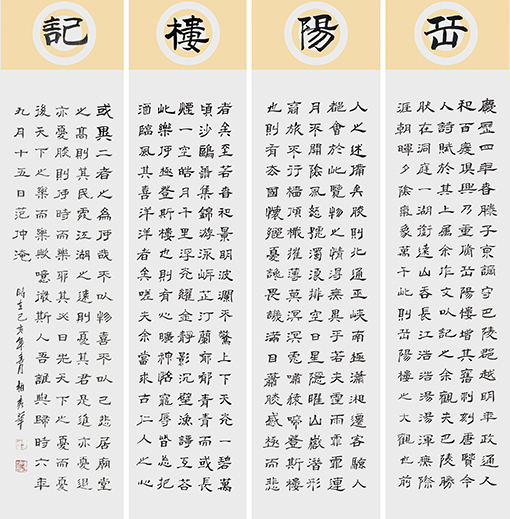 岳
陽
樓
記
慶歷四年春滕子京謫守巴陵郡越明年政通人
和百廢具興乃重脩岳陽樓增其舊制刻唐賢今
人詩賦於其上屬余作文以記之余觀夫巴陵勝
狀在洞庭一湖銜遠山吞長江浩浩湯湯渾無際
涯朝暉夕陰氣象萬千此則岳陽樓之大觀也前
人之述備矣然則北通巫峽南極瀟湘遷客騷人
多會於此覽物之情得無異乎若夫霪雨霏霏連
月不開陰風怒號濁浪排空日星隱曜山嶽潛形
商旅不行檣傾楫摧薄暮冥冥虎嘯猿啼登斯樓
也則有去國懷鄉憂讒畏譏滿目蕭然感極而悲
者矣至若春和景明波瀾不驚上下天光一碧萬
頃沙鷗翔集錦鱗游泳岸芷汀蘭郁郁青青而或長
煙一空皓月千里浮光躍金靜影沉璧漁歌互答
此樂何極登斯樓也則有心曠神怡寵辱皆忘把
酒臨風其喜洋洋者矣嗟夫余嘗求古仁人之心
或異二者之為何哉不以物喜不以己悲居廟堂
之高則其民處江湖之遠則憂其君是進亦憂退
亦憂然則何時而樂耶其必曰先天下之憂而憂
後天下之樂而樂歟噫微斯人吾誰與歸時六年
九月十五日范仲淹 時在己亥年